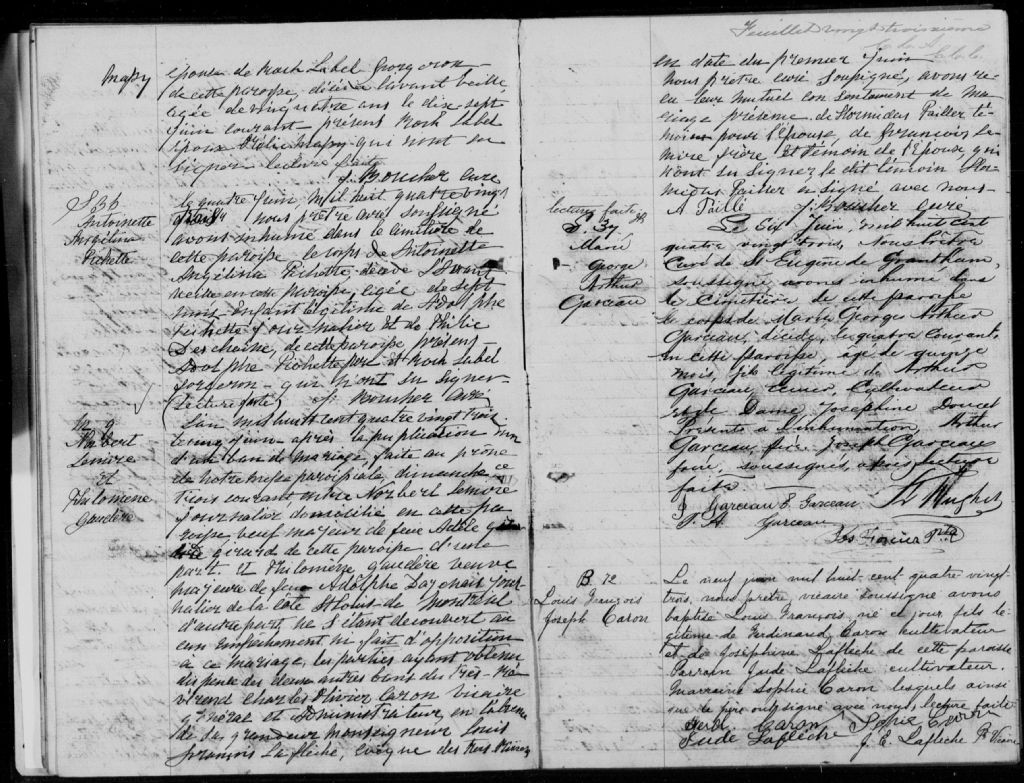 Massy
épouse de Roch Label forgeron
de cette paroisse, décédée l'avant veille
agée de cinquante ans le dix sept
Juin courant présent Roch Label
époux qui n'ont su
signer lecture faite
J. Boucher curé
S 36
Antoinette
Angelina
Pichette
Le quatre Juin, mil huit quatre vingt
trois nous prêtre curé soussigné
avons inhumé dans le cimetière de
cette paroisse le corps de Antoinette
Angelina Pichette décédée l'avant
veille en cette paroisse, agée de sept
mois enfant légitime de Adolphe
Pichette journalier et de Philie
Deschaine, de cette paroisse présens
Adolphe Pichette père et Roch Label
forgeron qui n'ont su signer
(Lecture faite) J. Boucher curé
M 9
Norbert
Lemire
et
Philomène
Gaudère
L'an mil huit cent quatre vingt trois
le cinq Juin après la publication
d'un ban de mariage faite au prône
de notre messe paroissiale, dimanche ce
trois courant entre Norbert Lemire
journalier domicilié en cette pa
roisse, veuf majeur de feue Adèle
Girard de cette paroisse d'une
part, et Philomène Gaudère veuve
majeure de feu Adolphe Dargenais jour
nalier de la côte St Louis de Montréal
d'autre part ne s'étant découvert au
cun empêchement ni fait d'opposition
à ce mariage, les parties ayant obtenu
dispense des deux autres bans du très Ré
vérend Charles Olivier Caron vicaire
général et administrateur, en l'absence
de sa grandeur monseigneur Louis
François Lafleche, évêque des Trois Rivières
Feuillet vingt troisième
en date du premier Juin
Nous prêtre curé soussigné, avons re
çu leur mutuel consentement de ma
riage présence de Hormidas Pailler té
moin pour l'épouse, de François Le
mire frère et témoin de l'époux, qui
n'ont su signer le dit témoin Hor
midas Pailler a signé avec nous
lecture faite
A Paillé J. Boucher curé
S. 37
Marie
George
Arthur
Garceau
Le six Juin, mil huit cent
quatre vingt trois, Nous Prêtre
Curé de St Eugène de Grantham,
soussigné avons inhumé dans
le Cimetière de cette paroisse
le corps de Marie Georges Arthur
Garceau, décédé, le quatre courant,
en cette Paroisse, agé de quinze
mois, fils légitime de Arthur
Garceau, Cultivateur
et de Dame Josephine Doucet
Présents à l'inhumation, Arthur
Garceau, père Joseph Garceau
soussignés, après lecture
faite
J Garceau E. Garceau
J. A. Garceau
B 12
Louis François
Joseph Caron
Le neuf juin mil huit cent quatre vingt
trois, nous prêtre, vicaire soussigné avons
baptisé Louis François, né ce jour fils lé
gitime de Ferdinand Caron cultivateur
et de Joséphine Lafleche de cette paroisse
Parrain Jude Lafleche cultivateur.
Marraine Sophie Caron lesquels ainsi
que le père ont signé avec nous, lecture faite
Ferd Caron Sophie Caron
Jude Lafleche J. E. Lafleche Ptre Vicaire